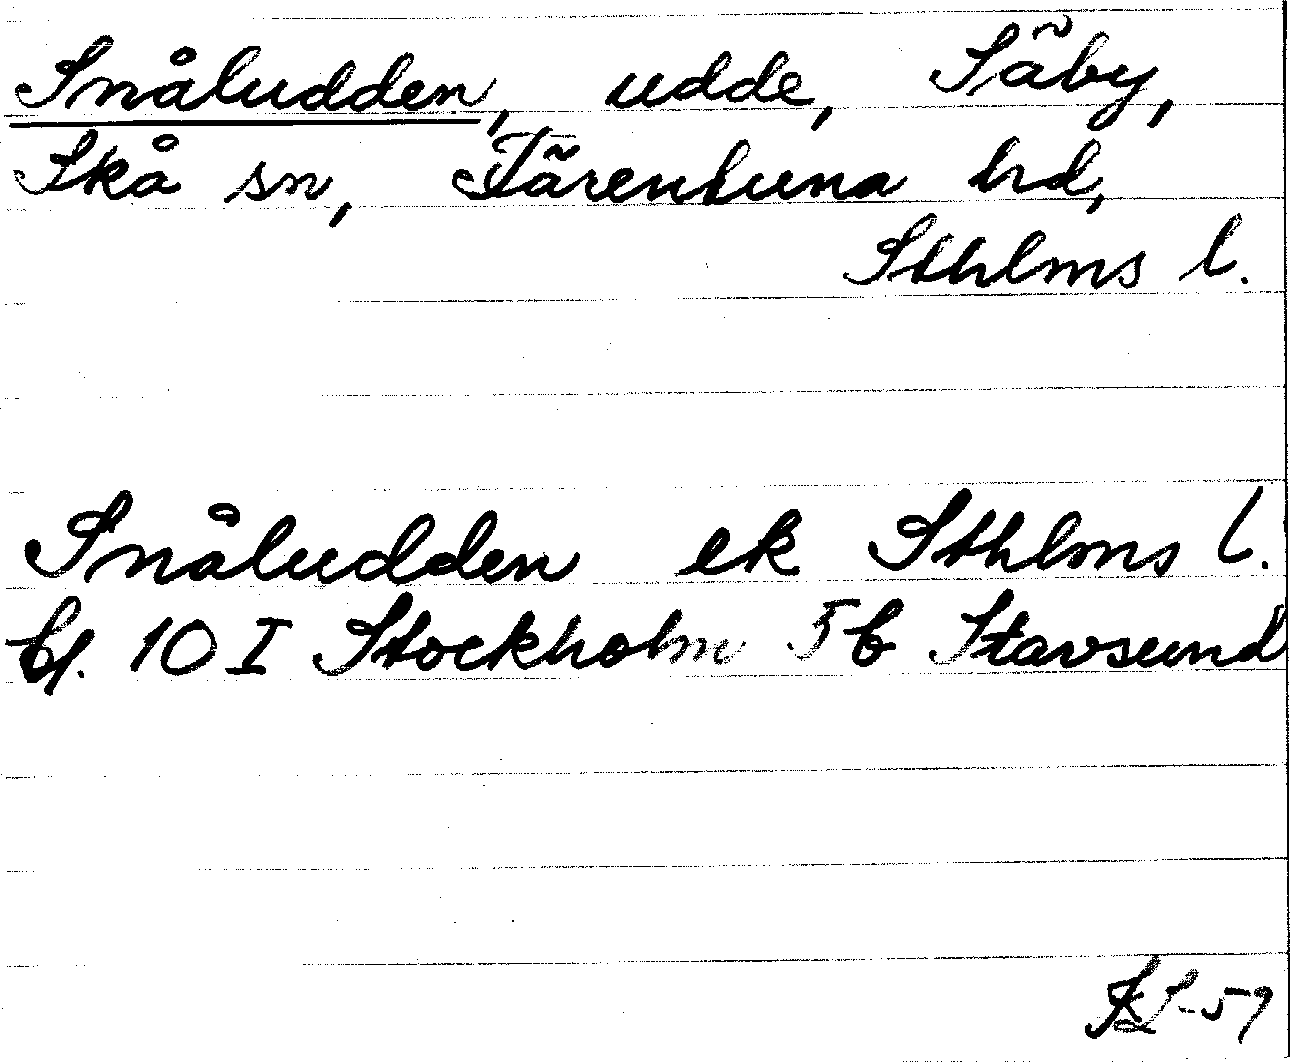 Snåludden, udde, Säby,
Skå sn, Färentuna hd,
Sthlms l.
Snåludden ek Sthlms l.
bl. 10 I Stockholm 5b Stavsund